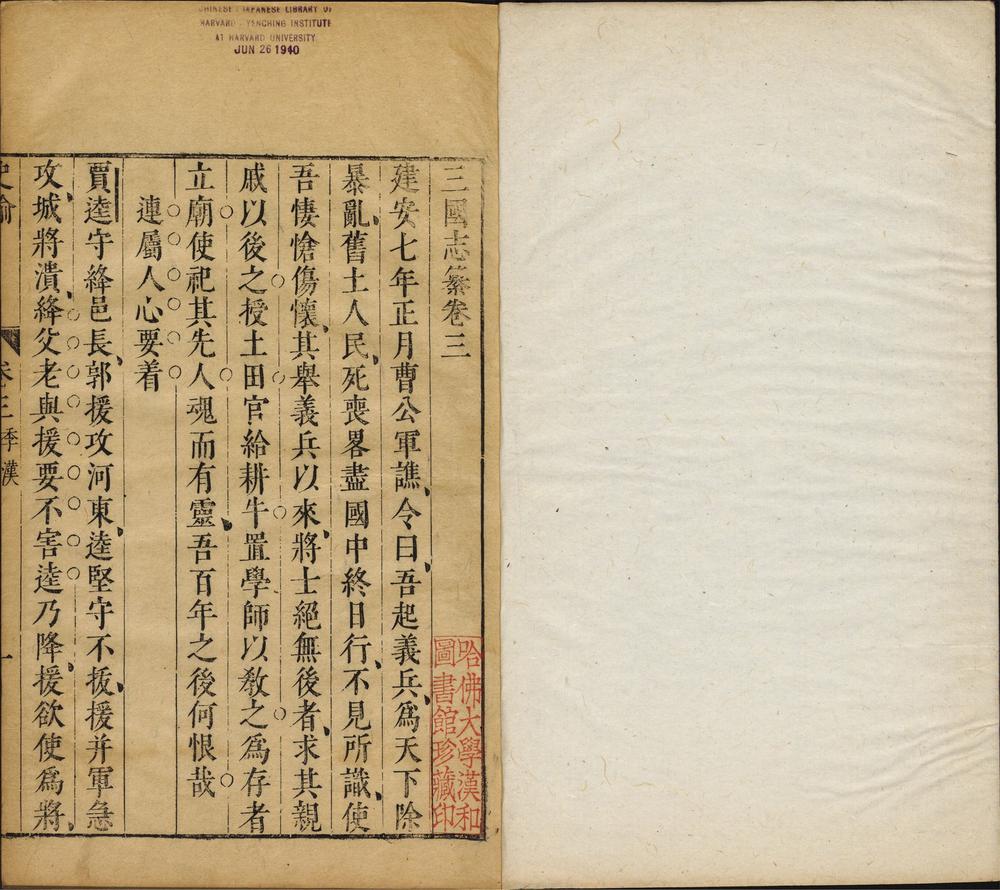 CHINESE-JAPANESE LIBRARY OF
HARVARD-YENCHING INSTITUTE
AT HARVARD UNIVERSITY
JUN 26 1940
三國志纂卷三
建安七年正月曹公軍譙令曰吾起義兵爲天下除
暴亂舊土人民死喪畧盡國中終日行不見所識使
吾悽愴傷懷其舉義兵以來將士絕無後者求其親
戚以後之授土田官給耕牛置學師以敎之爲存者
立廟使祀其先人魂而有靈吾百年之後何恨哉
連屬人心要着
賈逵守絳邑長郭援攻河東逵堅守不拔援并軍急
攻城將潰絳父老與援要不害逵乃降援欲使爲將
卷三季漢
一
哈佛大學漢和
圖書館珍藏印